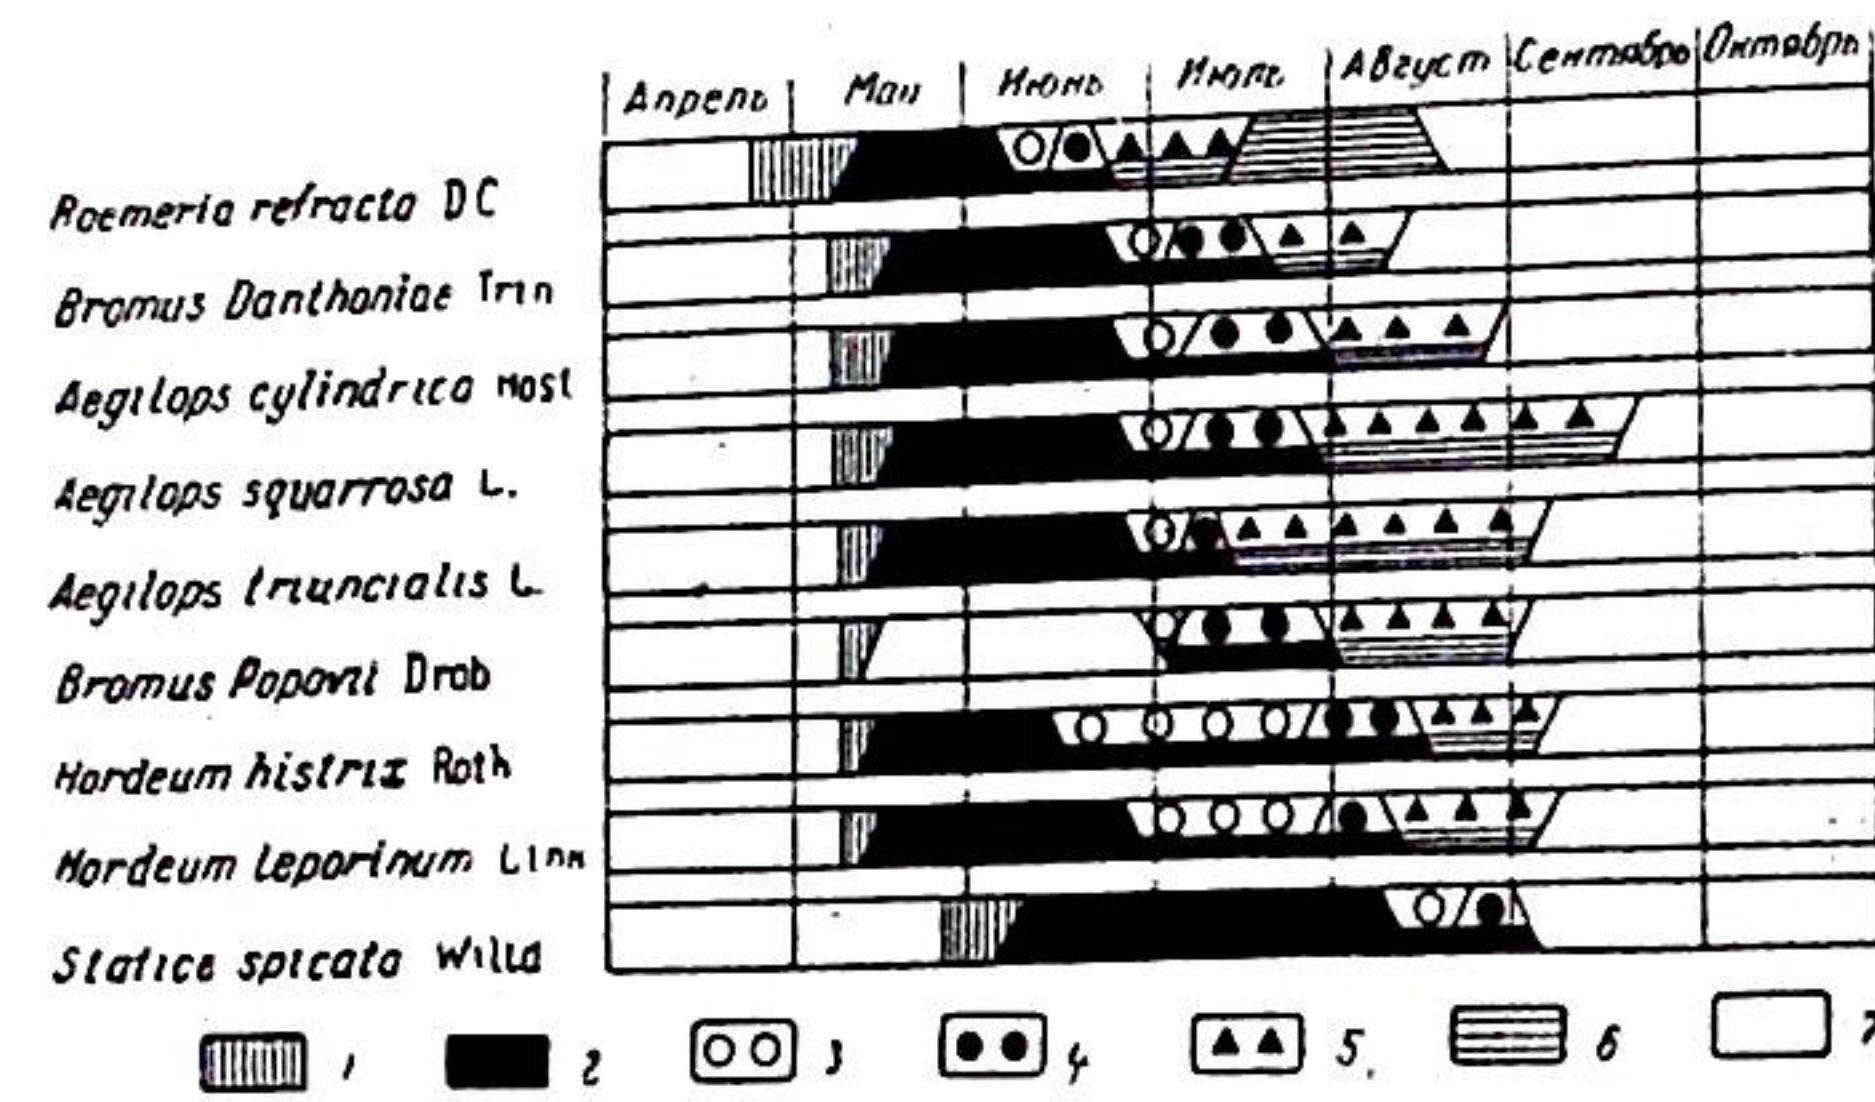 Апрель Май Июнь Июль Август Сентябрь Октябрь
Roemeria refracta DC
Bromus Danthoniae Trin
Aegilops cylindrica Host
Aegilops squarrosa L.
Aegilops triuncialis L.
Bromus Popovii Drob
Hordeum histrix Roth
Hordeum leporinum Link
Statice spicata Willd
1 2 3 4 5. 6 7